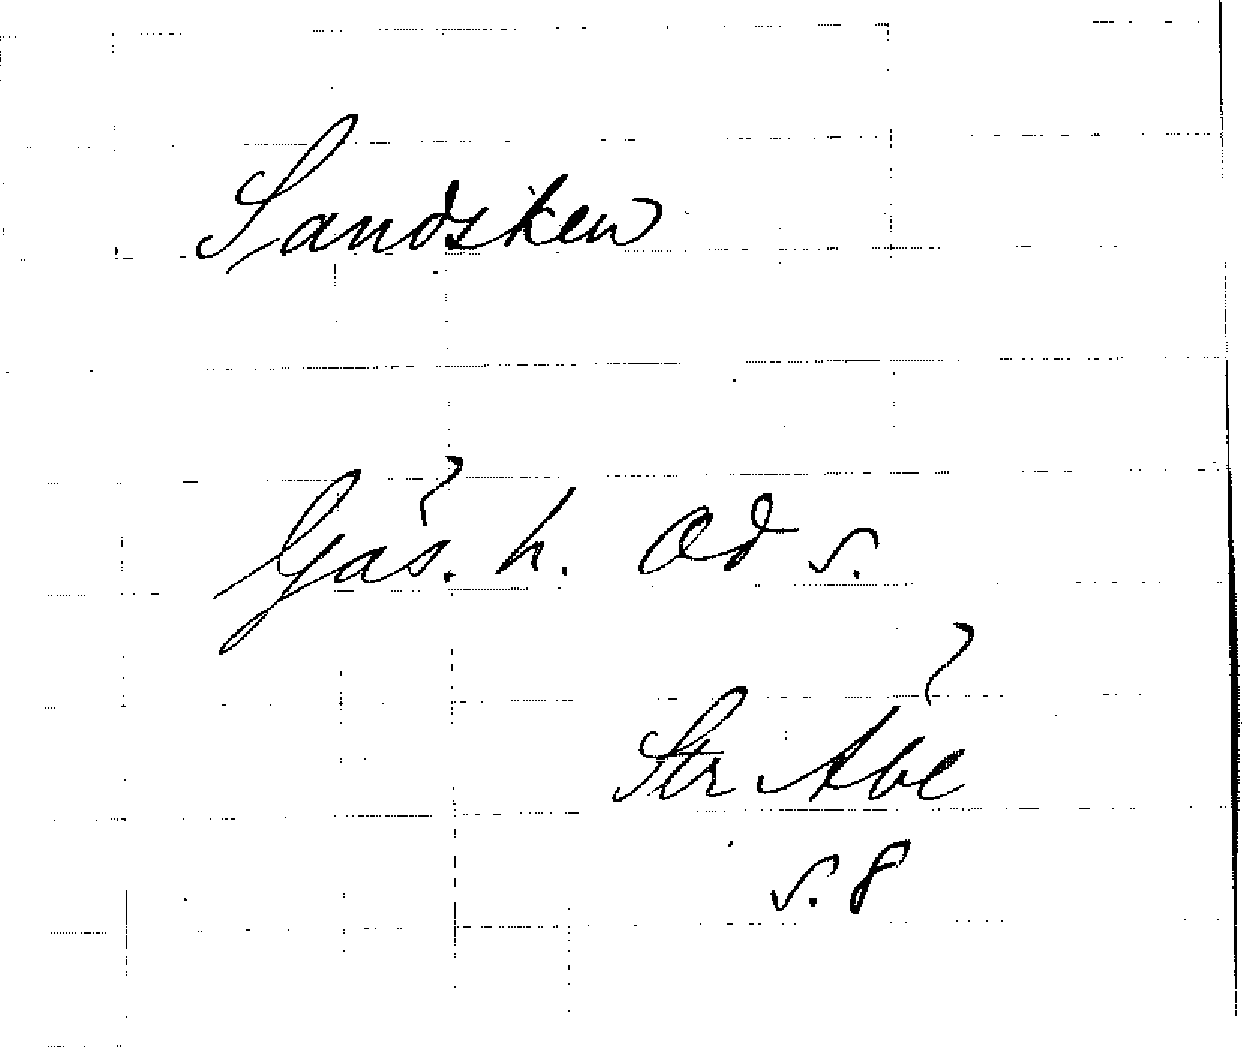 Sandsken
Gäs. h. Od s.
Str
s. 8